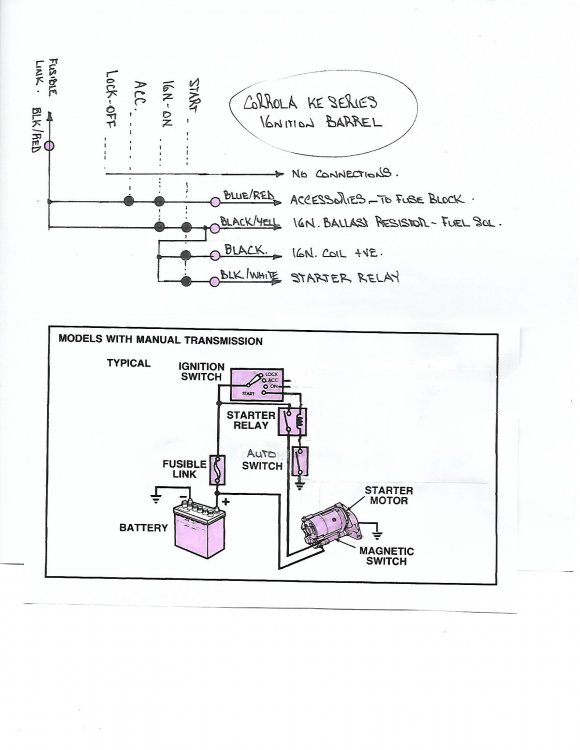 FUSIBLE
LINK.
BLK/RED
LOCK-OFF
ACC.
IGN-ON
START
CORROLA KE SERIES
IGNITION BARREL
NO CONNECTIONS.
BLUE/RED
ACCESSORIES - TO FUSE BLOCK.
BLACK/YELL
IGN. BALLAST RESISTOR - FUEL SOL.
BLACK.
IGN. COIL +VE.
BLK/WHITE
STARTER RELAY
MODELS WITH MANUAL TRANSMISSION
TYPICAL
IGNITION
SWITCH
LOCK
ACC
ON
START
STARTER
RELAY
AUTO
SWITCH
FUSIBLE
LINK
-
+
BATTERY
STARTER
MOTOR
MAGNETIC
SWITCH